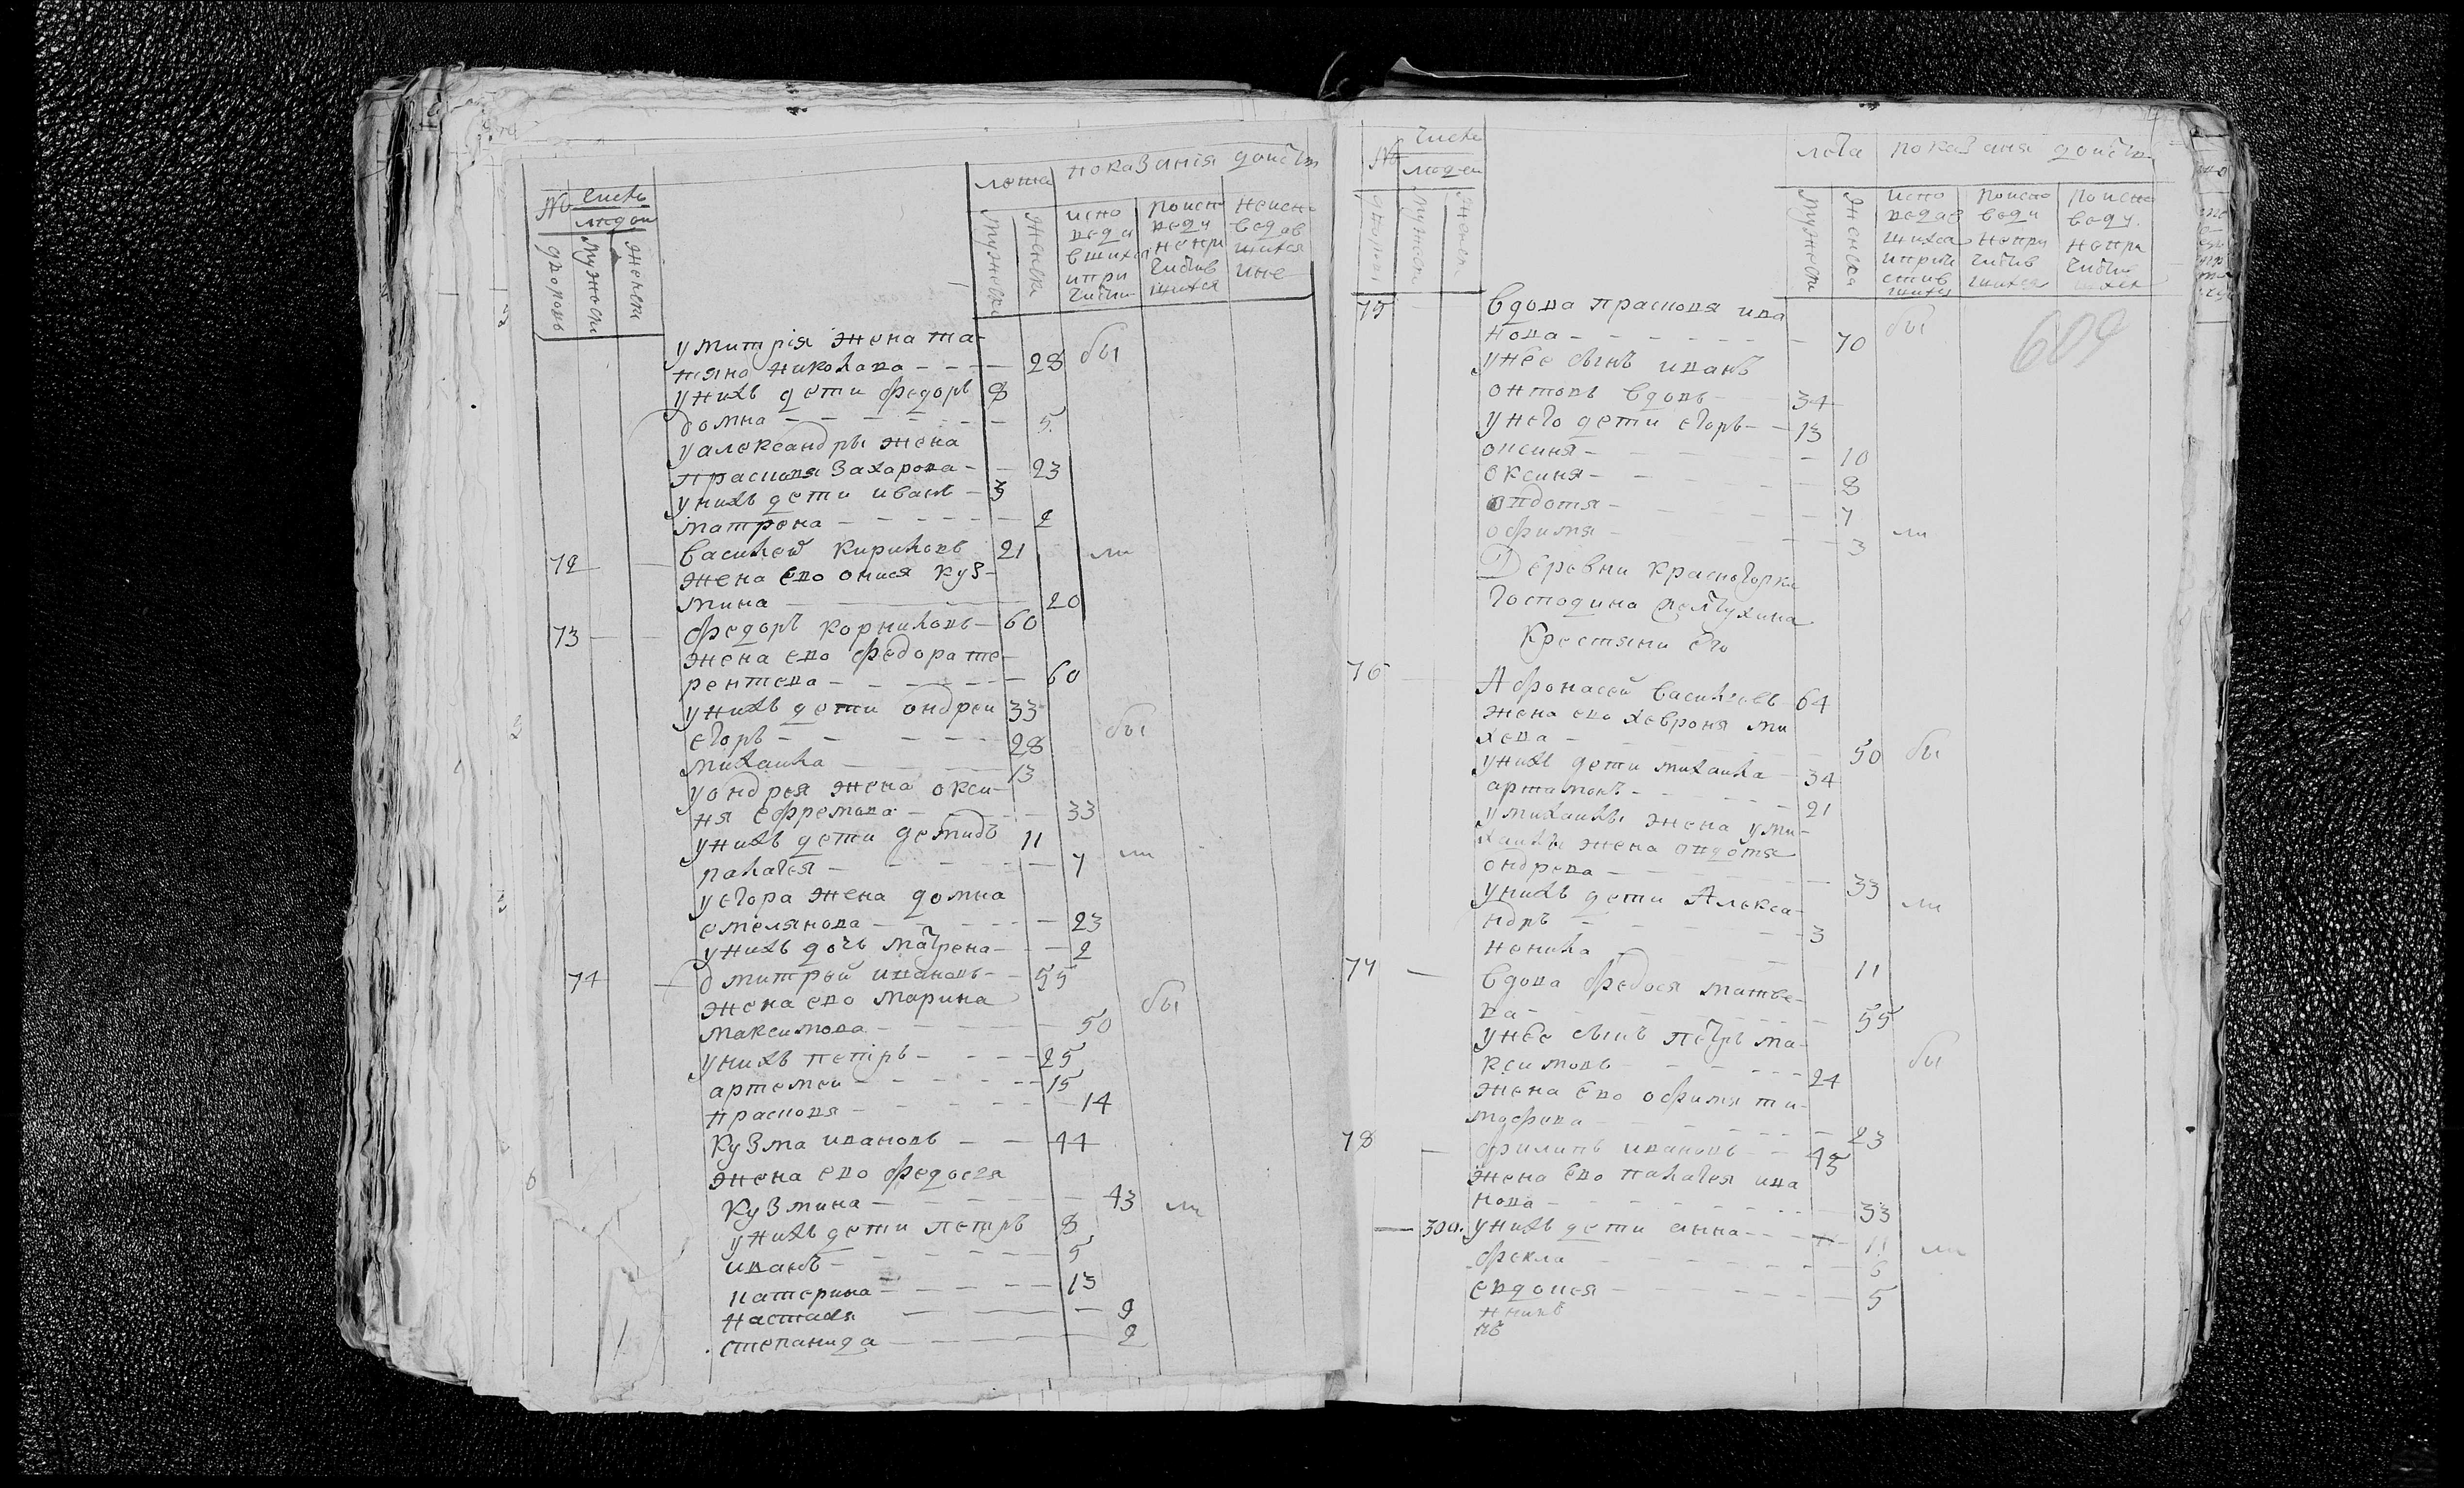 № числъ
людеи
лета
показанія
дворовъ
мужеска
женски
мужеска
женска
испо
веда
вшихся
ипри
поисп
веди
непри
чистив
шихся
неиспо
ведав
шихся
ине
умитрія жена та-
тяна николава - - - 28 бы
унихъ дети федоръ 8
домна - - - 5
уалександры жена
прасковя захарова - - 23
унихъ дети иванъ - 3
матрена - - - 2
72 василей кириловъ 21 ли
жена ево онися куз-
мина - - - 20
73 федоръ корниловъ - 60
жена ево федора те-
рентева - - - 60
унихъ дети ондреи 33
егоръ - - - 28 бы
михаила - - - 13
уондрея жена окси-
ня ефремова - - - 33
унихъ дети демидъ 11
палагея - - - 7 ли
уегора жена домна
емелянова - - - 23
унихъ дочь матрена - - - 2
74 дмитрей ивановъ - - 55
жена ево марина бы
максимова - - - 50
унихъ петръ - - - 25
артемеи - - - 15
прасковя - - - 14
кузма ивановъ - - 44
жена ево федосея
кузмина - - - 43 ли
унихъ дети петръ 8
иванъ - - - 5
катерина - - - 13
настася - - - 9
степанида - - - 2
№ числа
людеи
лета
показаня
мужеска
женски
мужеска
женска
испо
ведав
шихся
иприч
стив
шихся
поиспо
веди
непри
чистив
шихся
поиспо
веду
непри
чисти
609
75 вдова прасковя ива
нова - - - 70 бы
унее сынъ иванъ
онтовъ вдовъ 34
унего дети егоръ - - 13
оксиня - - - 10
оксиня - - - 8
овдотя - - - 7
офимя - - - 3 ли
Деревни красногорки
господина
крестяни его
76 Афонасей василевъ 64
жена ево хавроня ми
хева - - - 50 бы
унихъ дети михаила 34
артамонъ - - - 21
умихаилы жена уми-
хаилы жена овдотя
ондрева - - - 33
унихъ дети Алекса- ли
ндръ - - - 3
ненила 11
77 вдова федося матве-
ва - - - 55
унее сынъ петръ ма-
ксимовъ - - - 24 бы
жена ево офимя ти-
мофева - - - 23
78 филипъ ивановъ - - 45
жена ево палагея ива
нова - - - 33
300. унихъ дети анна - - 11 ли
фекла - - - 6
евдокея - - - 5